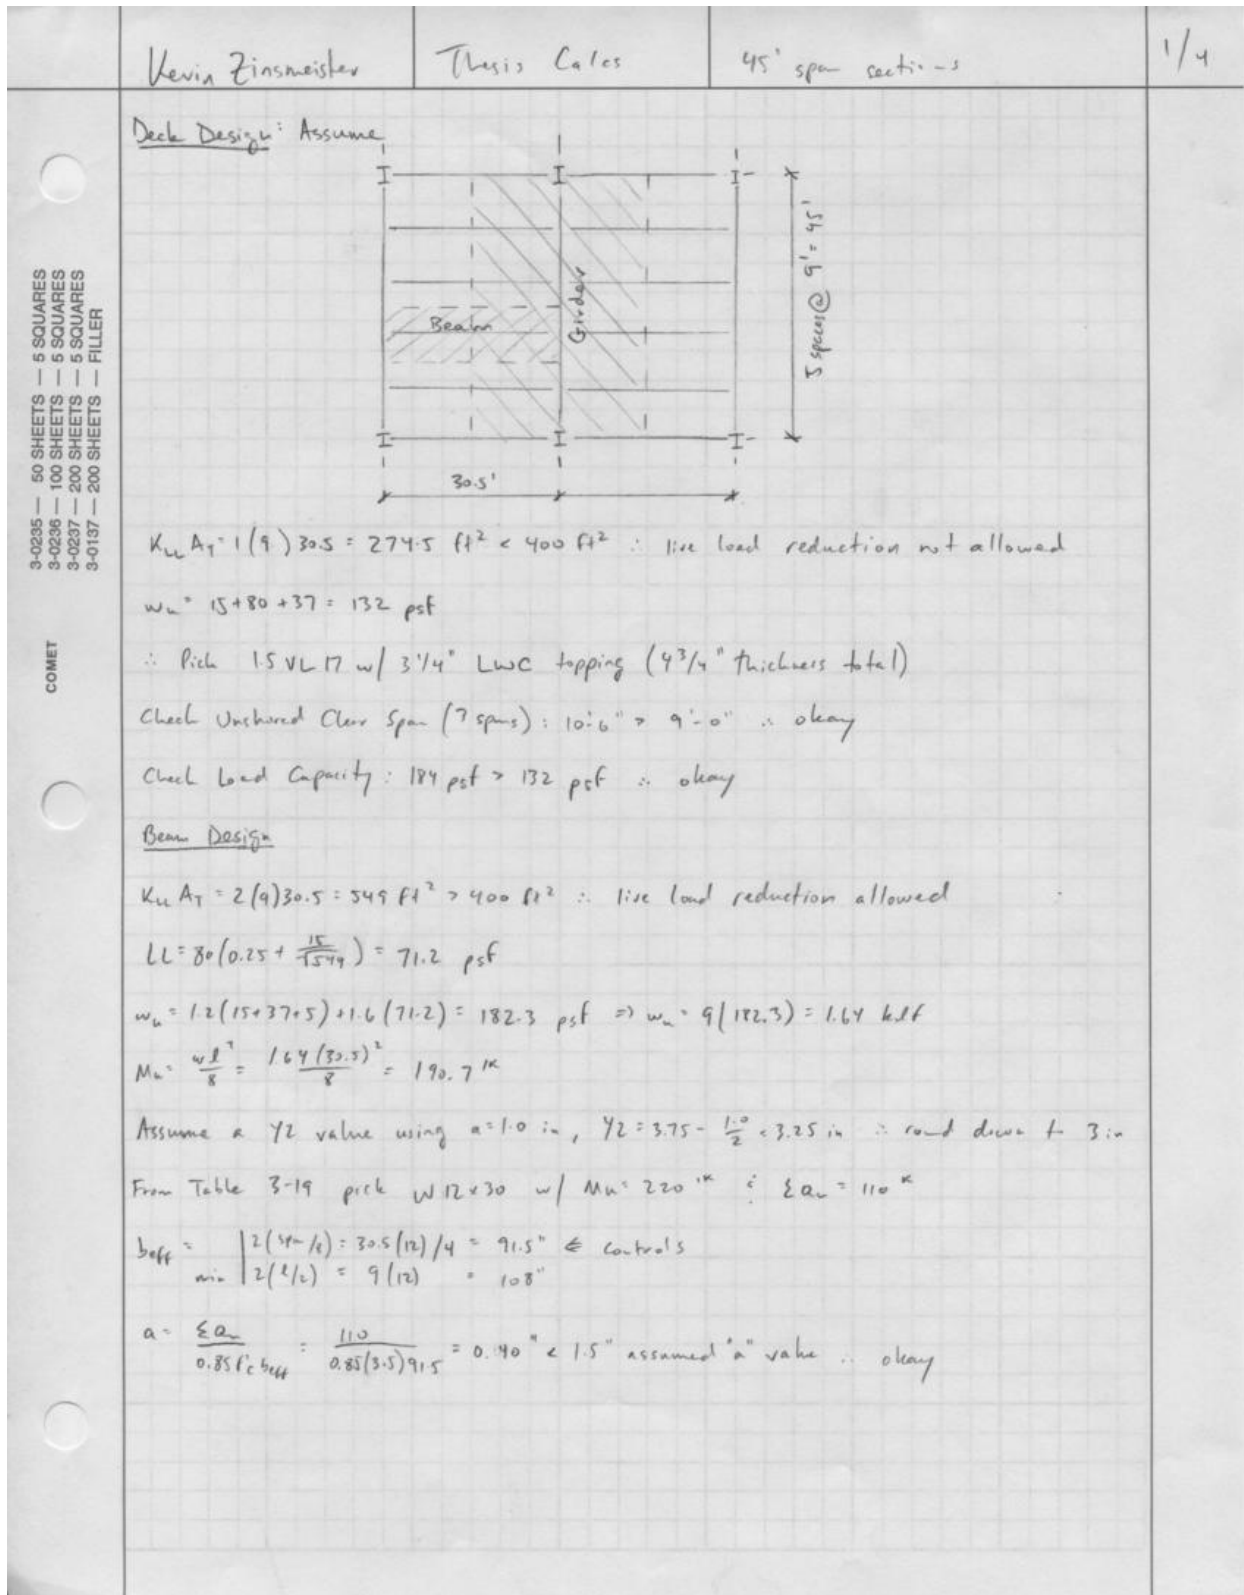 Kevin Zinsmeister
Thesis Calcs
45' span sections
1/4
3-0235 — 50 SHEETS — 5 SQUARES
3-0236 — 100 SHEETS — 5 SQUARES
3-0237 — 200 SHEETS — 5 SQUARES
3-0137 — 200 SHEETS — FILLER
COMET
Deck Design: Assume
I I I
Beam
Girder
5 spaces @ 9' = 45'
I I I
30.5'
K_LL A_T = 1(9)30.5 = 274.5 ft² < 400 ft² ∴ live load reduction not allowed
w_u = 15+80+37 = 132 psf
∴ Pick 1.5 VL 17 w/ 3 1/4" LWC topping (4 3/4" thickness total)
Check Unshored Clear Span (3 spans): 10'-6" > 9'-0" ∴ okay
Check Load Capacity: 184 psf > 132 psf ∴ okay
Beam Design
K_LL A_T = 2(9)30.5 = 549 ft² > 400 ft² ∴ live load reduction allowed
LL = 80(0.25 + 15/√549) = 71.2 psf
w_u = 1.2(15+37+5)+1.6(71.2) = 182.3 psf => w_u = 9(182.3) = 1.64 klf
M_u = wl²/8 = 1.64(30.5)²/8 = 190.7 'k
Assume a Y2 value using a=1.0 in, Y2 = 3.75 - 1.0/2 = 3.25 in ∴ round down to 3 in
From Table 3-19 pick W12x30 w/ M_n = 220 'k & ΣQ_n = 110 k
b_eff = min | 2(span/8) = 30.5(12)/4 = 91.5" ⇐ controls
| 2(l/2) = 9(12) = 108"
a = ΣQ_n/0.85f'c b_eff = 110/0.85(3.5)91.5 = 0.40" < 1.5" assumed "a" value ∴ okay